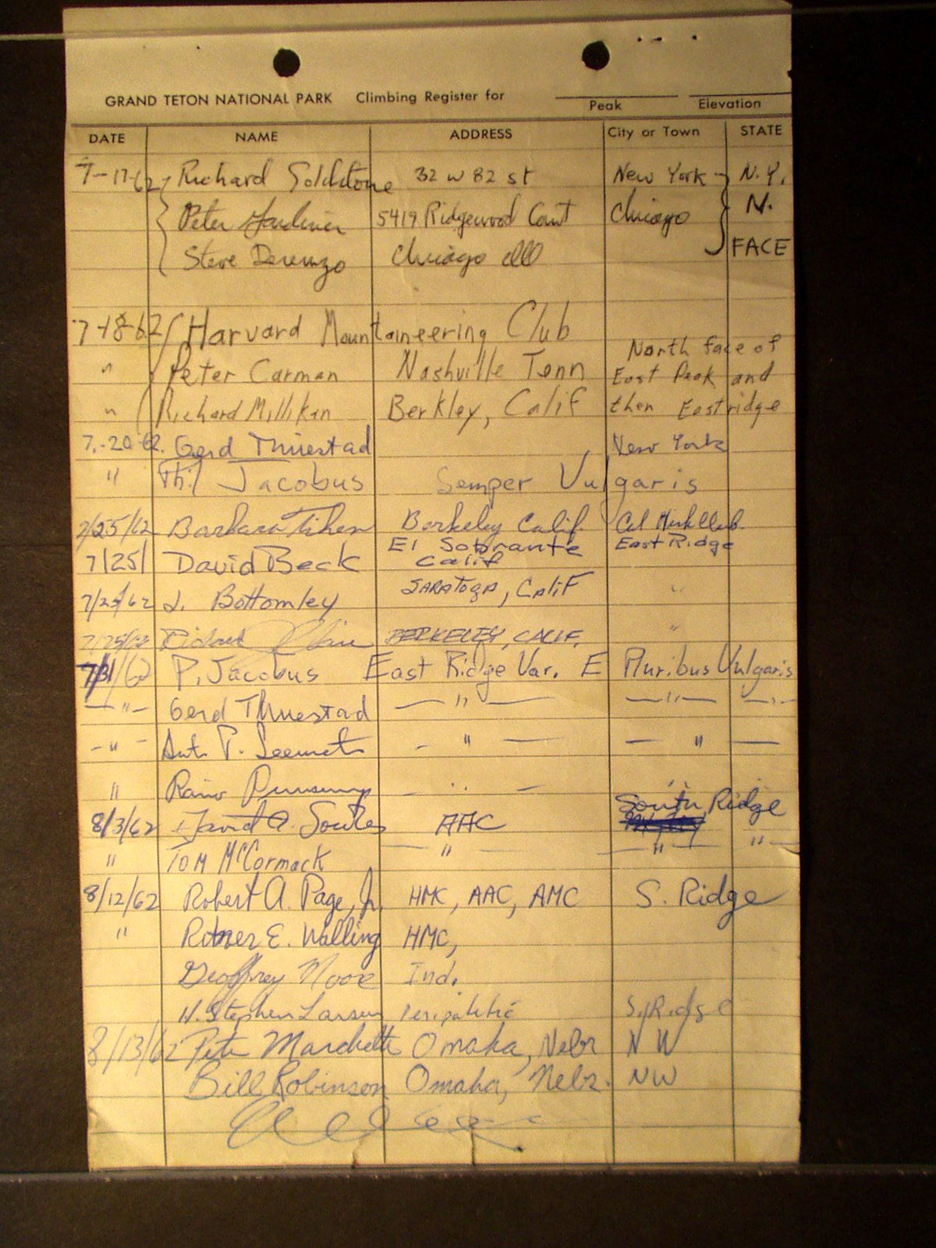 GRAND TETON NATIONAL PARK Climbing Register for
Peak Elevation
DATE NAME ADDRESS City or Town STATE
7-17-62 Richard Goldstone 32 W 82 st New York N.Y.
Peter Gardiner 5419 Ridgewood Court Chicago N.
Steve Derenzo Chicago Ill FACE
7-18-62 Harvard Mountaineering Club
" Peter Carman Nashville Tenn North face of East Peak and
" Richard Millikan Berkley, Calif then East ridge
7-20-62. Gerd Thuestad New York
" Phil Jacobus Semper Vulgaris
7/25/62 Barbara Berkeley Calif
7/25/ David Beck El Sobrante Calif East Ridge
7/25/62 J. Bottomley SARATOGA, CALIF "
7/25/62 Richard BERKELEY, CALIF. "
7/31/62 P. Jacobus East Ridge Var. E Pluribus Vulgaris
— " — Gerd Thuestad — " — — " — — " —
— " — — " — — " —
" "
8/3/62 David A. AAC South Ridge
" TOM McCORMACK — " — — " — "
8/12/62 Robert A. Page, Jr. HMC, AAC, AMC S. Ridge
" E. Walling HMC,
Geoffrey Moore Ind.
N. Stephen Larsen peripatetic S. Ridge
8/13/62 Pete Marchetti Omaha, Nebr NW
Bill Robinson Omaha, Nebr. NW